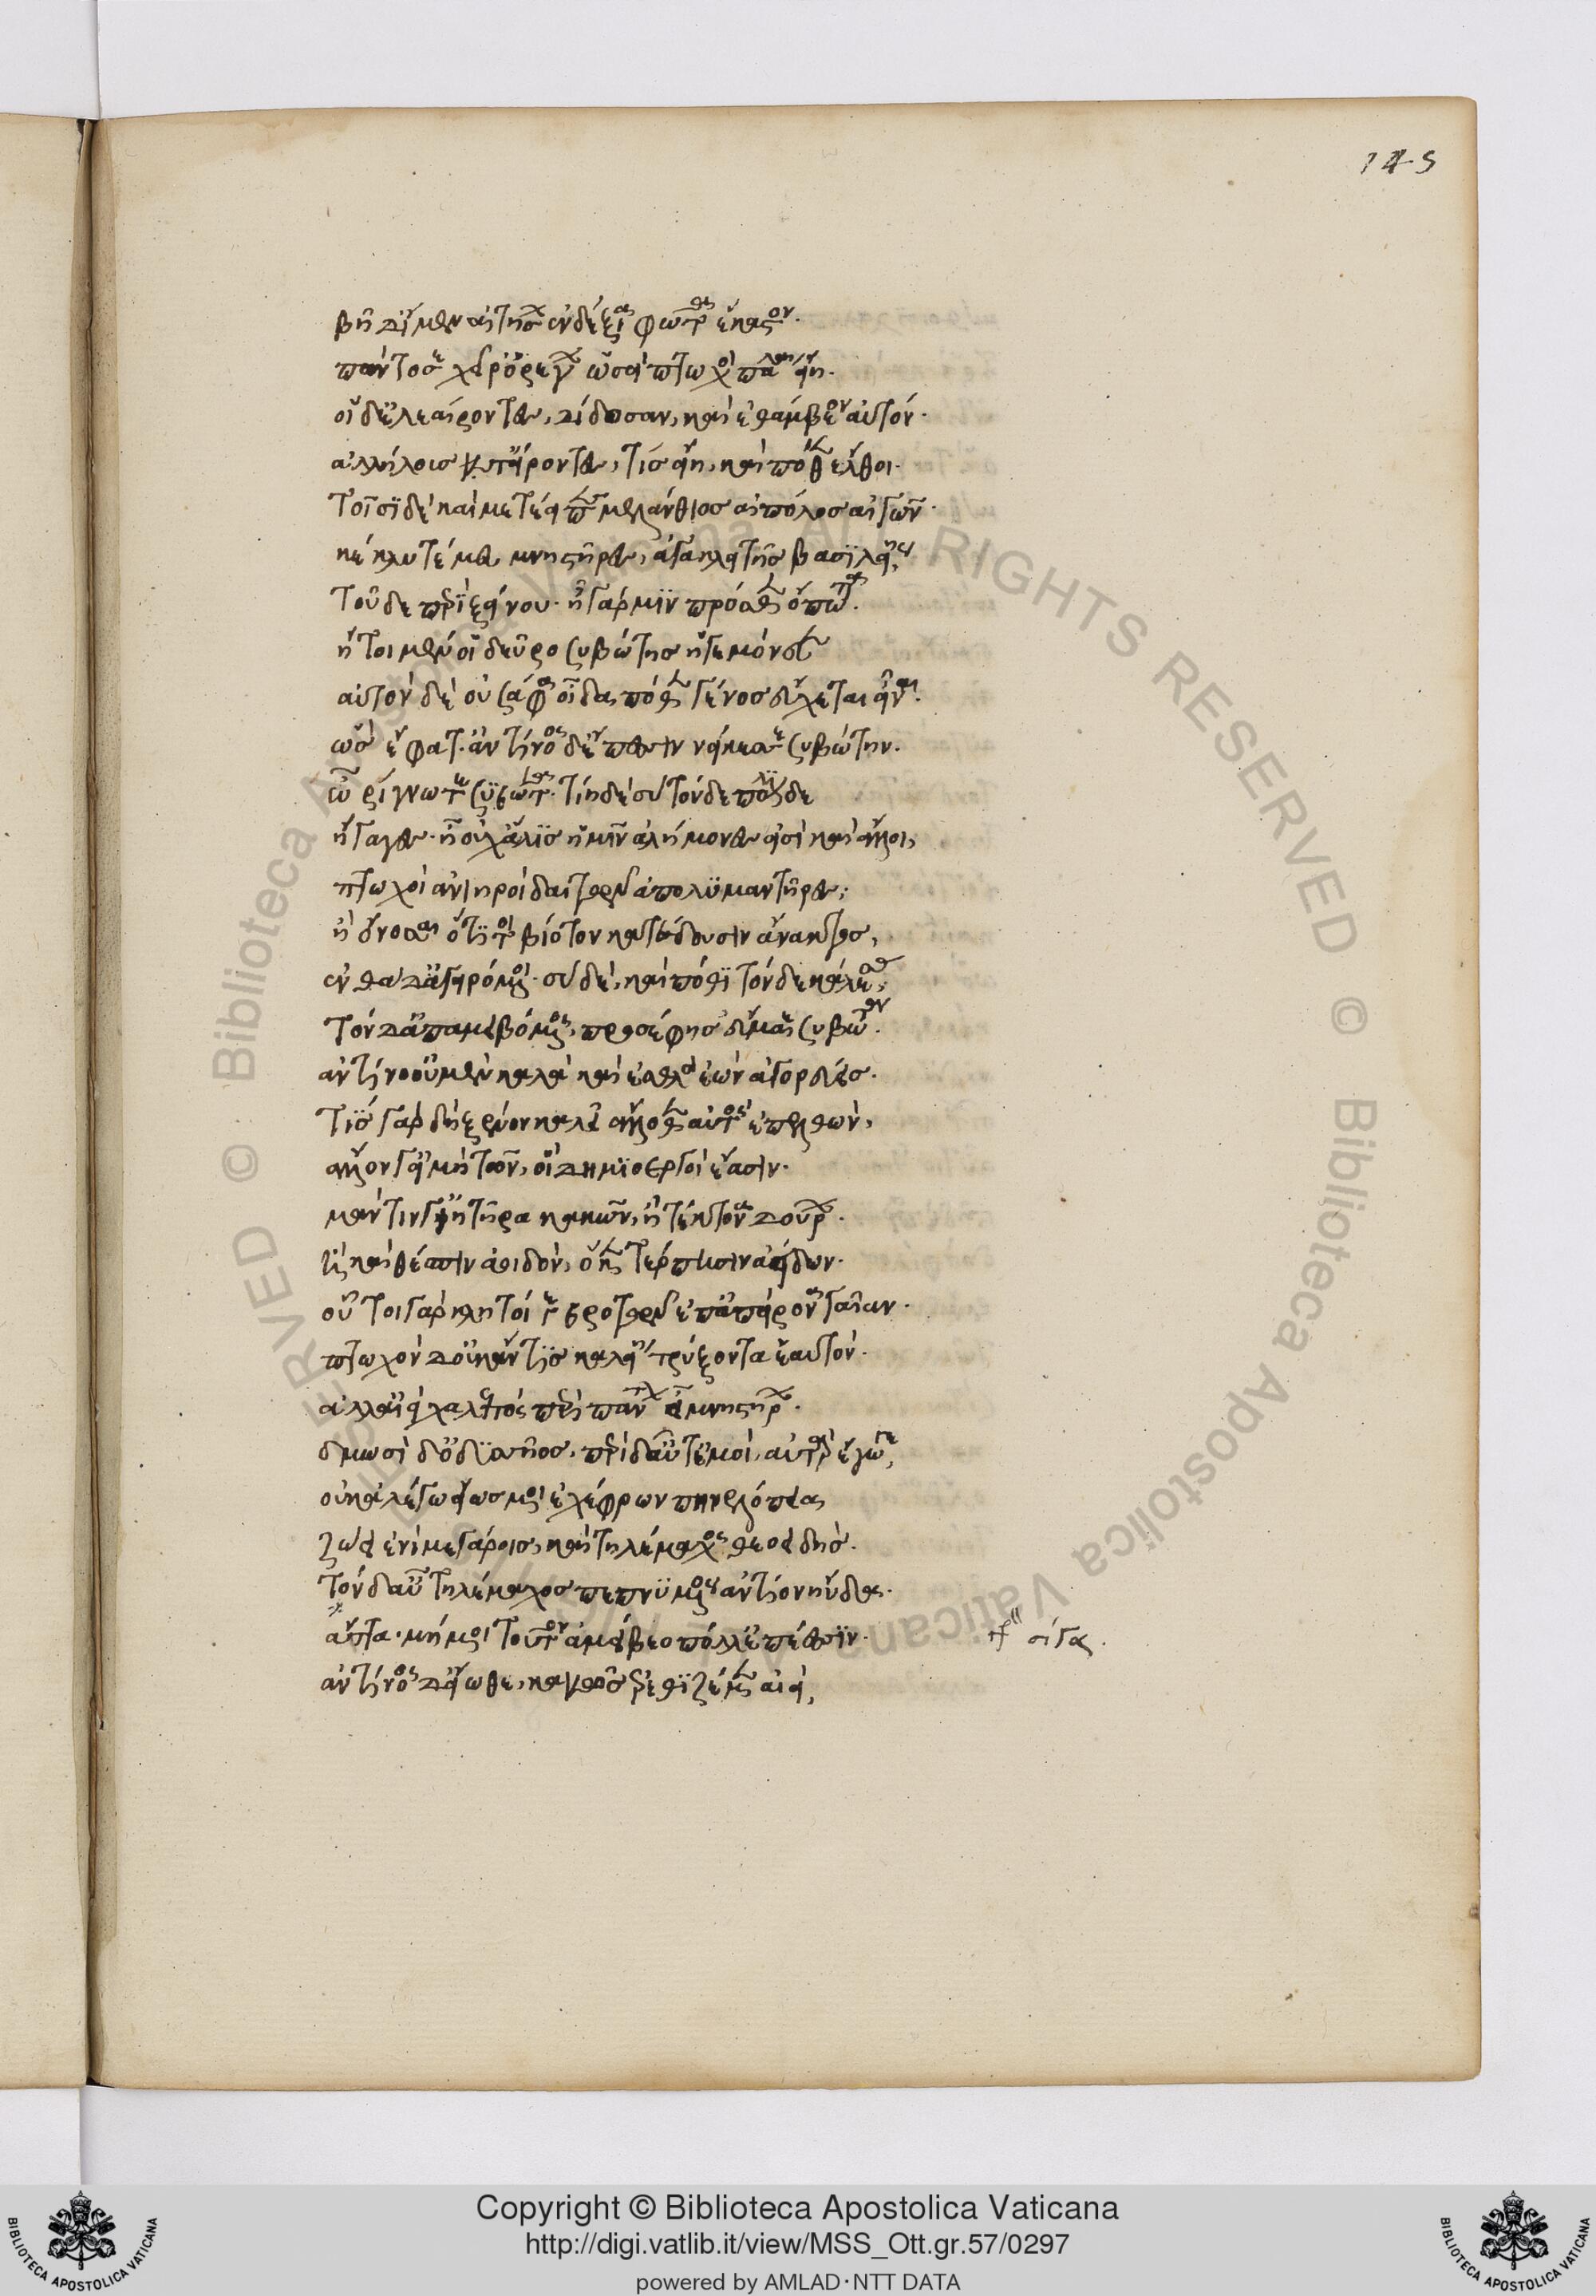 βῆ δ' ἴμεν αἰτήσων ἐνδέξια φῶτα ἕκαστον.
πάντοσε χεῖρ' ὀρέγων ὡσεὶ πτωχὸς πάλαι εἴη.
οἱ δ' ἐλεαίροντες, δίδοσαν, καὶ ἐθάμβεον αὐτόν.
ἀλλήλοις τ' εἴροντο, τίς εἴη, καὶ πόθεν ἔλθοι.
τοῖσι δὲ καὶ μετέειπε μελάνθιος αἰπόλος αἰγῶν.
κέκλυτέ μευ μνηστῆρες, ἀγακλειτῆς βασιλείης,
τοῦδε περὶ ξείνου. ἦ γάρ μιν πρόσθεν ὄπωπα.
ἤτοι μέν οἱ δεῦρο συβώτης ἡγεμόνευεν
αὐτὸν δὲ οὐ σάφα οἶδα πόθεν γένος εὔχεται εἶναι.
ὣς ἔφατ. ἀντίνοος δ' ἔπεσιν νείκεσσε συβώτην.
ὦ ρίγνωτε συβῶτα. τίη δὲ σὺ τόνδε πόλινδε
ἤγαγες. ἦ οὐχ ἅλις ἧμιν ἀλήμονες εἰσὶ καὶ ἄλλοι,
πτωχοὶ ἀνιηροὶ δαιτῶν ἀπολυμαντῆρες;
ἢ ὄνοσαι ὅτι τοι βίοτον κατέδουσιν ἄνακτος,
ἐνθάδ' ἀγειρόμενοι. σὺ δὲ, καὶ πόθι τόνδ' ἐκάλεσσας;
τὸν δ' ἀπαμειβόμενος, προσέφης εὔμαιε συβῶτα.
ἀντίνο' οὐ μὲν καλὰ καὶ ἐσθλὸς ἐὼν ἀγορεύεις.
τίς γὰρ δὴ ξεῖνον καλεῖ ἄλλοθεν αὐτὸς ἐπελθών,
ἄλλον γ' εἰ μὴ τῶν, οἳ δημιοεργοὶ ἔασιν.
μάντιν ἢ ἰητῆρα κακῶν, ἢ τέκτονα δούρων.
ἢ καὶ θέσπιν ἀοιδόν, ὅ κεν τέρπησιν ἀείδων.
οὗτοι γὰρ κλητοί γε βροτῶν ἐπ' ἀπείρονα γαῖαν.
πτωχὸν δ' οὐκ ἄν τις καλέοι τρύξοντα ἓ αὐτόν.
ἀλλ' αἰεὶ χαλεπὸς περὶ πάντων εἶς μνηστήρων.
δμωσὶ δ' ὀδυσσῆος, περὶ δ' αὖτ' ἐμοὶ, αὐτὰρ ἔγωγε,
οὐκ ἀλέγω εἵως μοι ἐχέφρων πηνελόπεια
ζώει ἐνὶ μεγάροις, καὶ τηλέμαχος θεοειδής.
τὸν δ' αὖ τηλέμαχος πεπνυμένος ἀντίον ηὔδα.
ἄττα. μή μοι τοῦτον ἀμείβεο πόλλ' ἐπέεσσιν. γρ σίγα.
ἀντίνοος δ' εἴωθε, κακῶς ἐρεθιζέμεν αἰεὶ,
145